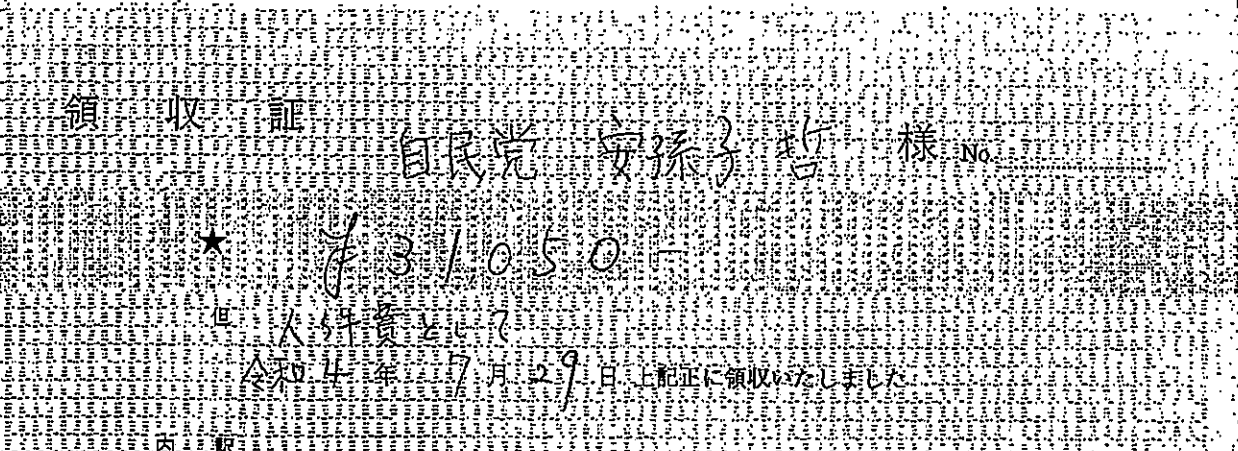 領収証
自民党 安孫子 哲 様 No.
★ ¥31050-
但 人件費として
令和4年7月29日 上記正に領収いたしました
内訳